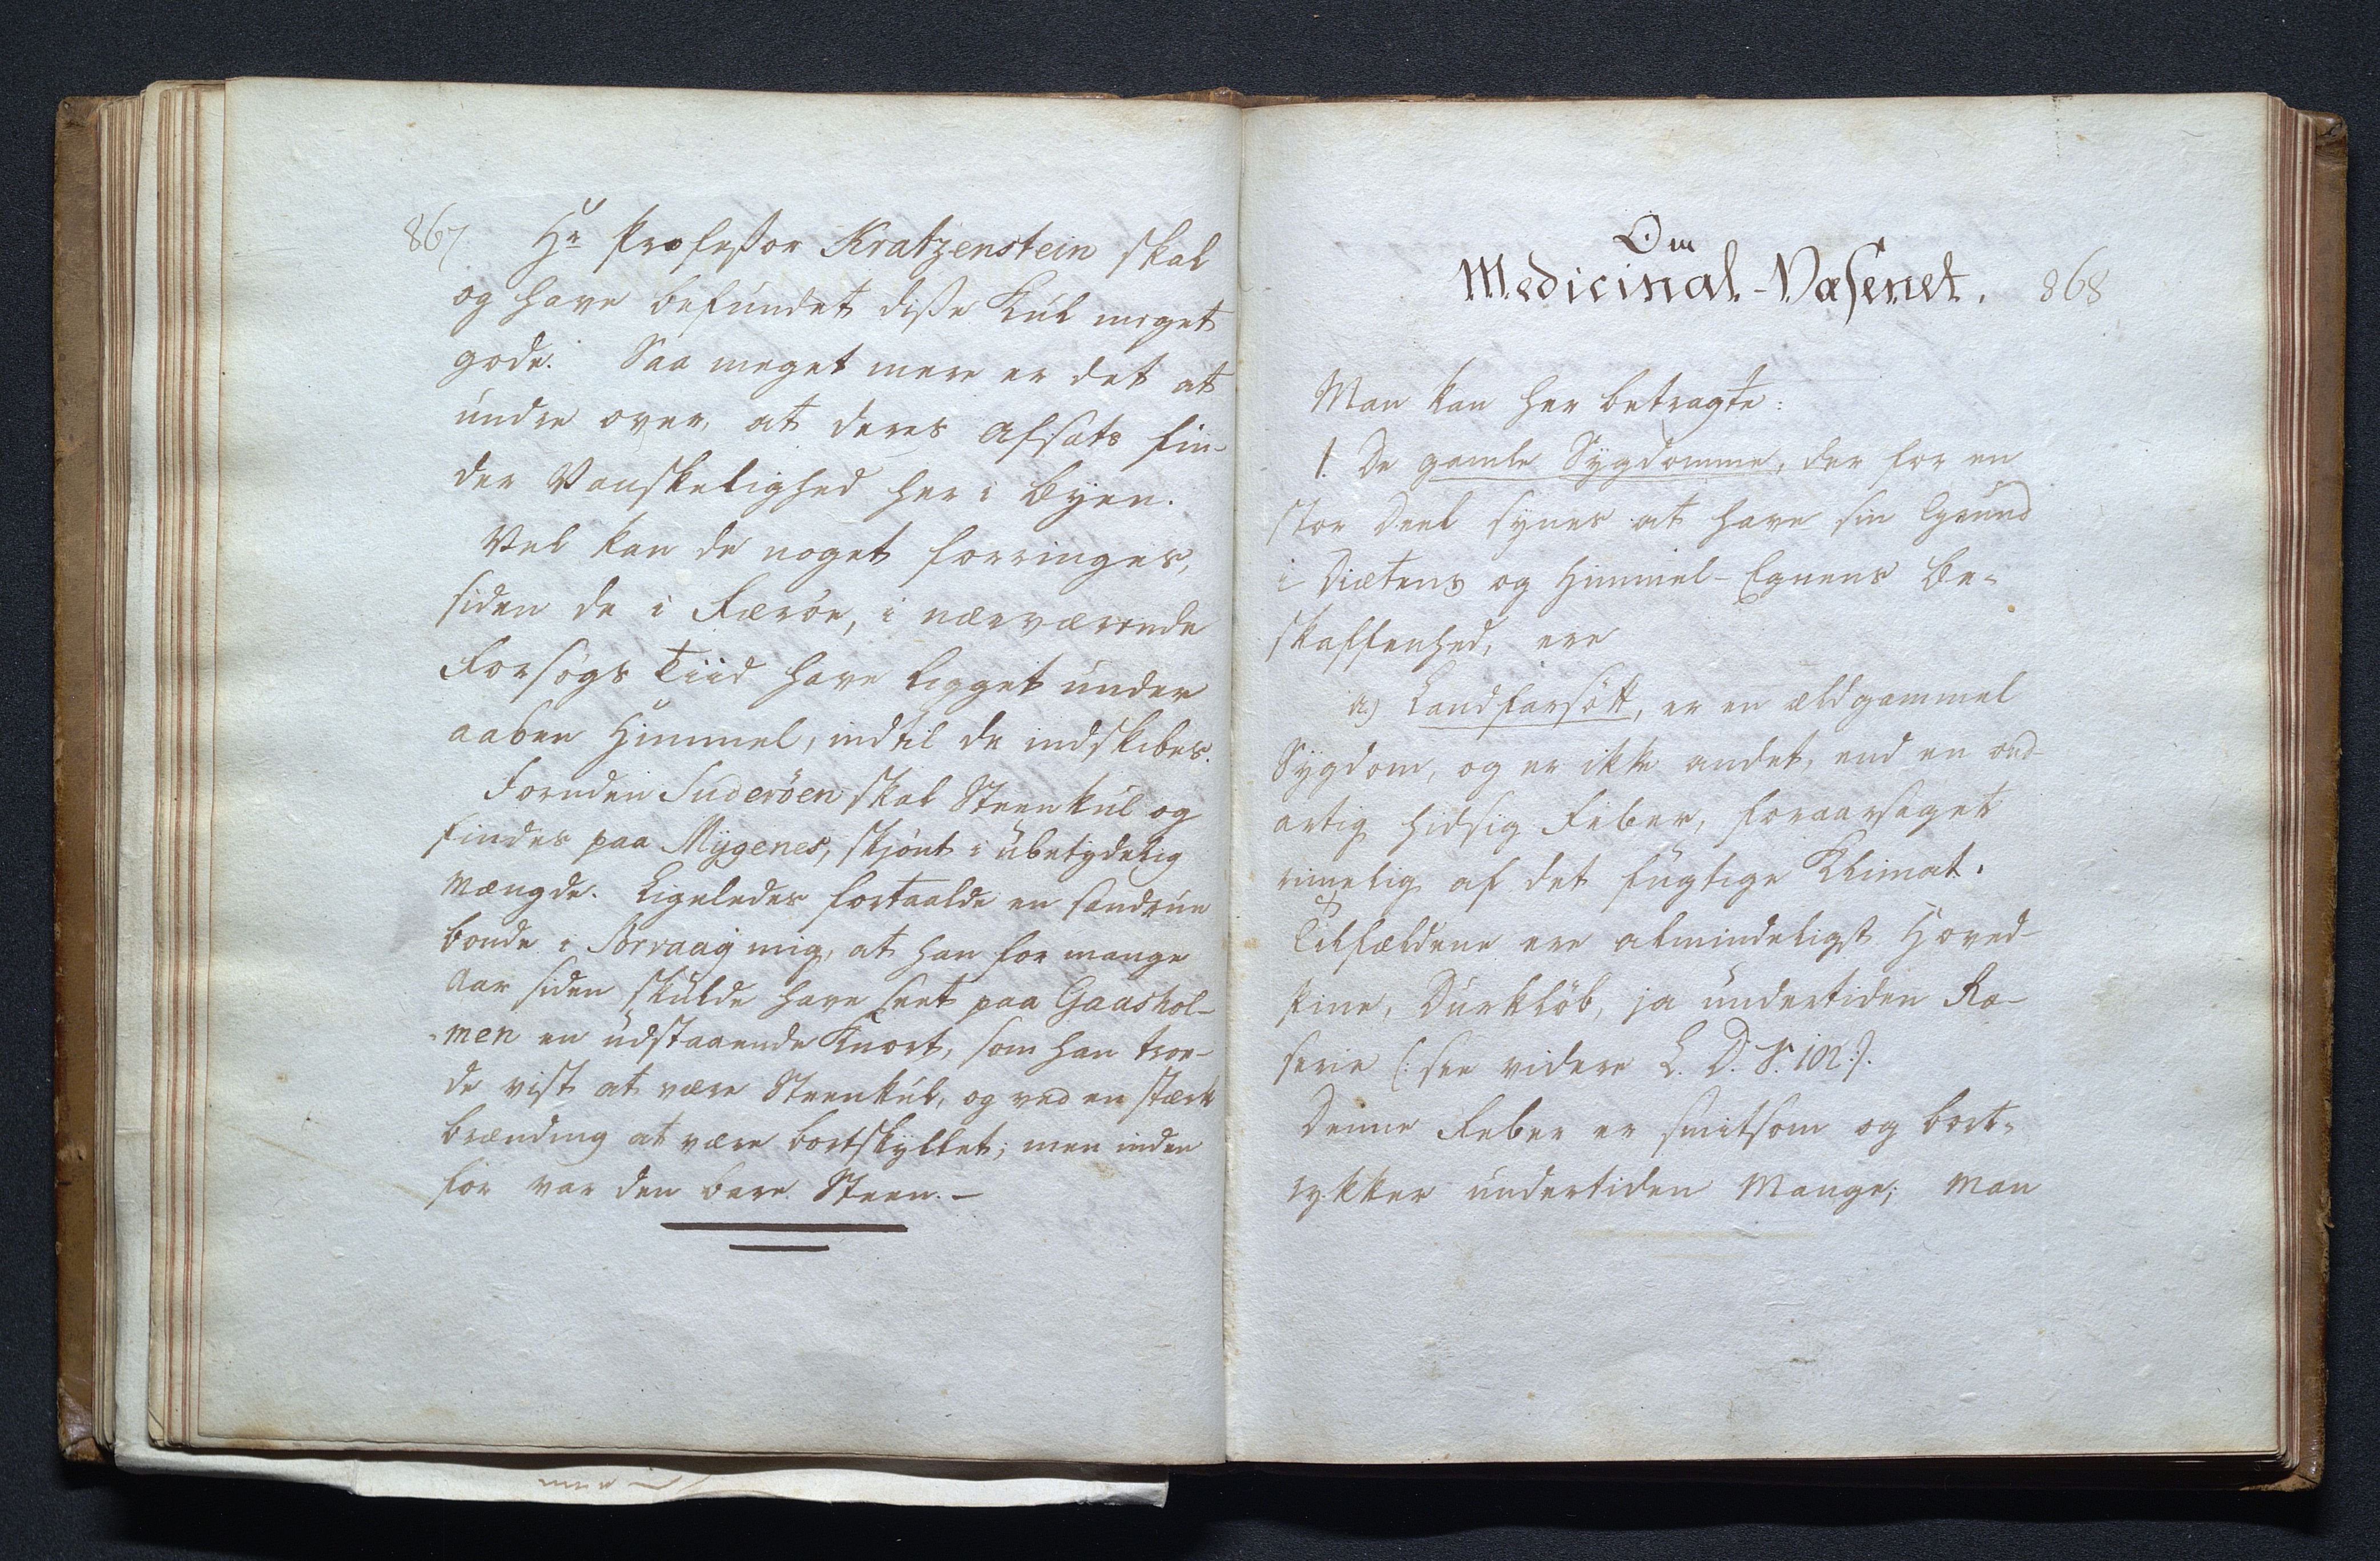 867
Hr Professor Kratzenstein skal
og have befundet disse Kul meget
gode. Saa meget mere er det at
undre over, at deres Afsats fin-
der Vanskelighed her i Byen.
Vel kan de noget forringes,
siden de i Færöe, i nærværende
Forsögs Tiid have ligget under
aaben Himmel, indtil de indskibes.
Foruden Suderöen skal Steenkul og
findes paa Mygenes, skjönt i ubetydelig
Mængde. Ligeledes fortaalde en sandrue
bonde i Sörvaag mig, at han for mange
Aar siden skulde have seet paa Gaashol-
men en udstaaende Knort, som han troe-
de vist at være Steenkul, og ved en stærk
brænding at være bortskyllet; men inden
for var den bare Steen. —
Om
Medicinal-Væsenet.
868
Man kan her betragte:
1. De gamle Sygdomme, der for en
stor Deel synes at have sin Grund
i Diætens og Himmel-Egnens Be-
skaffenhed, ere
a) Landfarsött, er en ældgammel
Sygdom, og er ikke andet, end en ond
artig hidsig Feber, foraarsaget
rimelig af det fugtige Klimat.
Tilfældene ere almindeligst Hoved-
pine, Durklöb, ja undertiden Ra-
serie (: see videre L. D. S. 102 :).
Denne Feber er smitsom og bort-
rykker undertiden Mange; Man